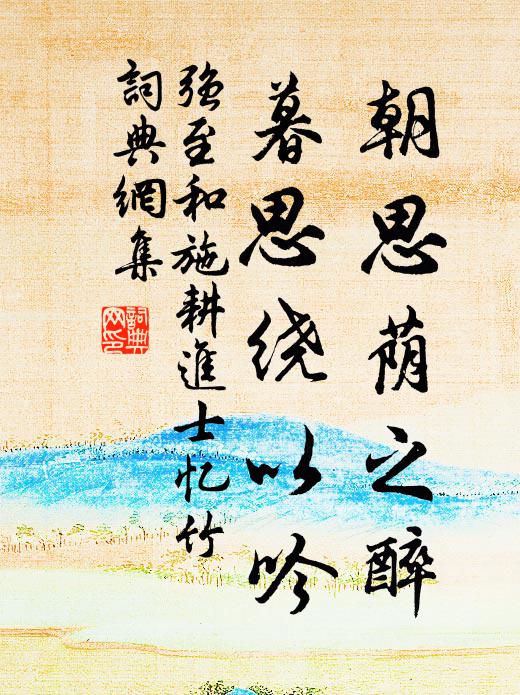 朝思荫之醉
暮思绕以吟
强至和施耕進士忆竹
詞典網集
詞典
网印